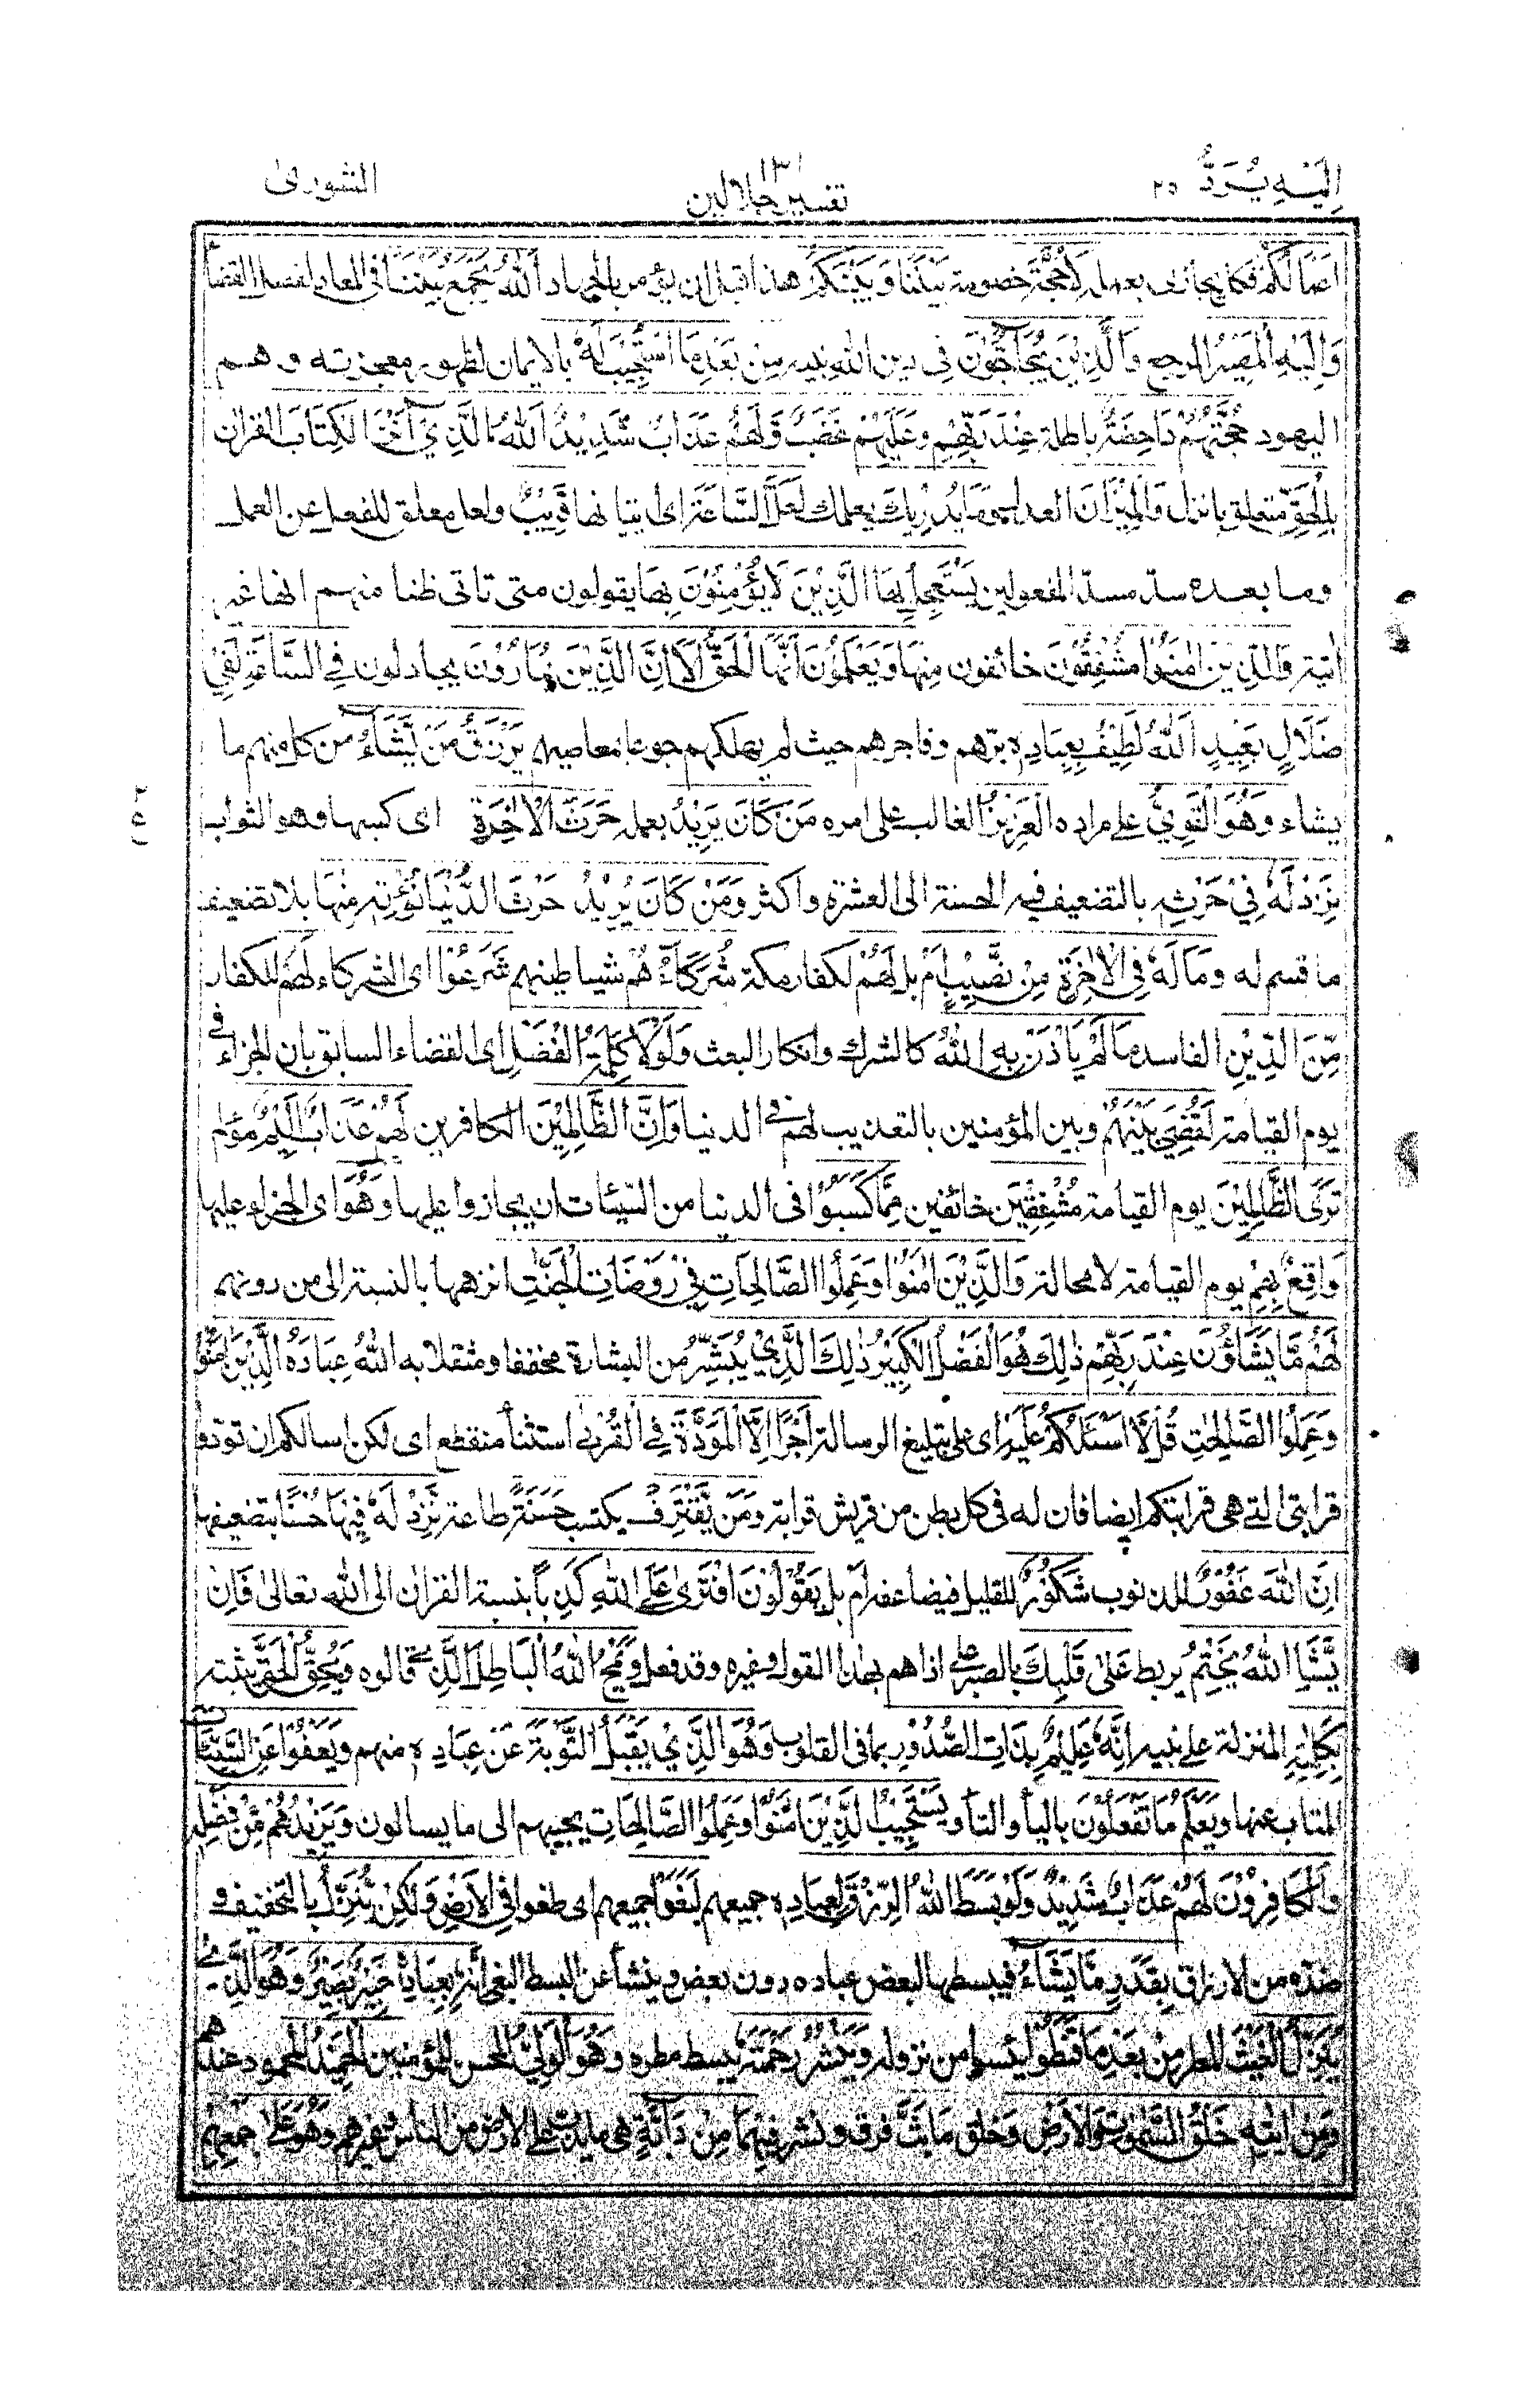 اِلَيْهِ يُرَدُّ ٢٥
١٣١
تفسير جلالين
الشورىٰ
اَعْمَالُكُمْ فكل يجازى بعمله لَا حُجَّةَ خصومة بَيْنَنَا وَبَيْنَكُمْ هذا قبل ان يؤمر بالجهاد اَللّٰهُ يَجْمَعُ بَيْنَنَا فى المعاد لفصل القضاء
وَاِلَيْهِ الْمَصِيْرُ المرجع وَالَّذِيْنَ يُحَآجُّوْنَ فِى دين اللّٰهِ نبيه مِنْ بَعْدِ مَا اسْتُجِيْبَ لَهٗ بالايمان لظهور معجزته وهم
اليهود حُجَّتُهُمْ دَاحِضَةٌ باطلة عِنْدَ رَبِّهِمْ وَعَلَيْهِمْ غَضَبٌ وَّلَهُمْ عَذَابٌ شَدِيْدٌ اَللّٰهُ الَّذِيْ اَنْزَلَ الْكِتَابَ القران
بِالْحَقِّ متعلق بانزل وَالْمِيْزَانَ العدل وَمَا يُدْرِيْكَ يعلمك لَعَلَّ السَّاعَةَ اى اتيانها قَرِيْبٌ ولعل معلق للفعل عن العمل
وما بعده سد مسد المفعولين يَسْتَعْجِلُ بِهَا الَّذِيْنَ لَا يُؤْمِنُوْنَ بِهَا يقولون متى تاتى ظنا منهم انها غير
اتية وَالَّذِيْنَ اٰمَنُوْا مُشْفِقُوْنَ خائفون مِنْهَا وَيَعْلَمُوْنَ اَنَّهَا الْحَقُّ اَلَا اِنَّ الَّذِيْنَ يُمَارُوْنَ يجادلون فِى السَّاعَةِ لَفِيْ
ضَلَالٍ بَعِيْدٍ اَللّٰهُ لَطِيْفٌ بِعِبَادِهٖ برهم وفاجرهم حيث لم يهلكهم جوعا بمعاصيهم يَرْزُقُ مَنْ يَّشَآءُ من كل منهم ما
يشاء وَهُوَ الْقَوِيُّ على مراده الْعَزِيْزُ الغالب على امره مَنْ كَانَ يُرِيْدُ بعمله حَرْثَ الْاٰخِرَةِ اى كسبها وهو الثواب
نَزِدْ لَهٗ فِيْ حَرْثِهٖ بالتضعيف فيه الحسنة الى العشرة واكثر وَمَنْ كَانَ يُرِيْدُ حَرْثَ الدُّنْيَا نُؤْتِهٖ مِنْهَا بلا تضعيف
ما قسم له وَمَا لَهٗ فِى الْاٰخِرَةِ مِنْ نَّصِيْبٍ اَمْ بل لَهُمْ لكفار مكة شُرَكَآءُ هم شياطينهم شَرَعُوْا اى الشركاء لَهُمْ للكفار
مِّنَ الدِّيْنِ الفاسد مَا لَمْ يَاْذَنْۢ بِهِ اللّٰهُ كالشرك وانكار البعث وَلَوْلَا كَلِمَةُ الْفَصْلِ اى القضاء السابق بان الجزاء فى
يوم القيامة لَقُضِيَ بَيْنَهُمْ وبين المؤمنين بالتعذيب لهم فى الدنيا وَاِنَّ الظَّالِمِيْنَ الكافرين لَهُمْ عَذَابٌ اَلِيْمٌ مؤلم
تَرَى الظَّالِمِيْنَ يوم القيامة مُشْفِقِيْنَ خائفين مِمَّا كَسَبُوْا فى الدنيا من السيئات ان يجازوا عليها وَهُوَ اى الجزاء عليها
وَاقِعٌۢ بِهِمْ يوم القيامة لا محالة وَالَّذِيْنَ اٰمَنُوْا وَعَمِلُوا الصَّالِحَاتِ فِيْ رَوْضَاتِ الْجَنّٰتِ انزهها بالنسبة الى من دونهم
لَهُمْ مَّا يَشَآؤُنَ عِنْدَ رَبِّهِمْ ذٰلِكَ هُوَ الْفَضْلُ الْكَبِيْرُ ذٰلِكَ الَّذِيْ يُبَشِّرُ من البشارة مخففا ومثقلا به اللّٰهُ عِبَادَهُ الَّذِيْنَ اٰمَنُوْا
وَعَمِلُوا الصّٰلِحٰتِ قُلْ لَّا اَسْئَلُكُمْ عَلَيْهِ اى على تبليغ الرسالة اَجْرًا اِلَّا الْمَوَدَّةَ فِى الْقُرْبٰى استثناء منقطع اى لكن اسالكم ان تودوا
قرابتى التى هى قرابتكم ايضا فان له فى كل بطن من قريش قرابة وَمَنْ يَّقْتَرِفْ يكتسب حَسَنَةً طاعة نَّزِدْ لَهٗ فِيْهَا حُسْنًا بتضعيفها
اِنَّ اللّٰهَ غَفُوْرٌ للذنوب شَكُوْرٌ للقليل فيضاعفه اَمْ بل يَقُوْلُوْنَ افْتَرٰى عَلَى اللّٰهِ كَذِبًا بنسبة القران الى الله تعالى فَاِنْ
يَّشَاِ اللّٰهُ يَخْتِمْ يربط عَلٰى قَلْبِكَ بالصبر على اذاهم بهذا القول وغيره وقد فعل وَيَمْحُ اللّٰهُ الْبَاطِلَ الذى قالوه وَيُحِقُّ الْحَقَّ يثبته
بِكَلِمٰتِهٖ المنزلة على نبيه اِنَّهٗ عَلِيْمٌۢ بِذَاتِ الصُّدُوْرِ بما فى القلوب وَهُوَ الَّذِيْ يَقْبَلُ التَّوْبَةَ عَنْ عِبَادِهٖ منهم وَيَعْفُوْا عَنِ السَّيِّئَاتِ
المتاب عنها وَيَعْلَمُ مَا تَفْعَلُوْنَ بالياء والتاء وَيَسْتَجِيْبُ الَّذِيْنَ اٰمَنُوْا وَعَمِلُوا الصَّالِحَاتِ يجيبهم الى ما يسالون وَيَزِيْدُهُمْ مِّنْ فَضْلِهٖ
وَالْكَافِرُوْنَ لَهُمْ عَذَابٌ شَدِيْدٌ وَلَوْ بَسَطَ اللّٰهُ الرِّزْقَ لِعِبَادِهٖ جميعهم لَبَغَوْا جميعهم اى طغوا فِى الْاَرْضِ وَلٰكِنْ يُّنَزِّلُ بالتخفيف و
ضده من الارزاق بِقَدَرٍ مَّا يَشَآءُ فيبسطها لبعض عباده دون بعض وينشأ عن البسط البغى اِنَّهٗ بِعِبَادِهٖ خَبِيْرٌۢ بَصِيْرٌ وَهُوَ الَّذِيْ
يُنَزِّلُ الْغَيْثَ المطر مِنْۢ بَعْدِ مَا قَنَطُوْا يئسوا من نزوله وَيَنْشُرُ رَحْمَتَهٗ يبسط مطره وَهُوَ الْوَلِيُّ المحسن للمؤمنين الْحَمِيْدُ المحمود عندهم
وَمِنْ اٰيٰتِهٖ خَلْقُ السَّمٰوٰتِ وَالْاَرْضِ وَخلق مَا بَثَّ فرق ونشر فِيْهِمَا مِنْ دَآبَّةٍ هى ما يدب على الارض من الناس وغيرهم وَهُوَ عَلٰى جَمْعِهِمْ